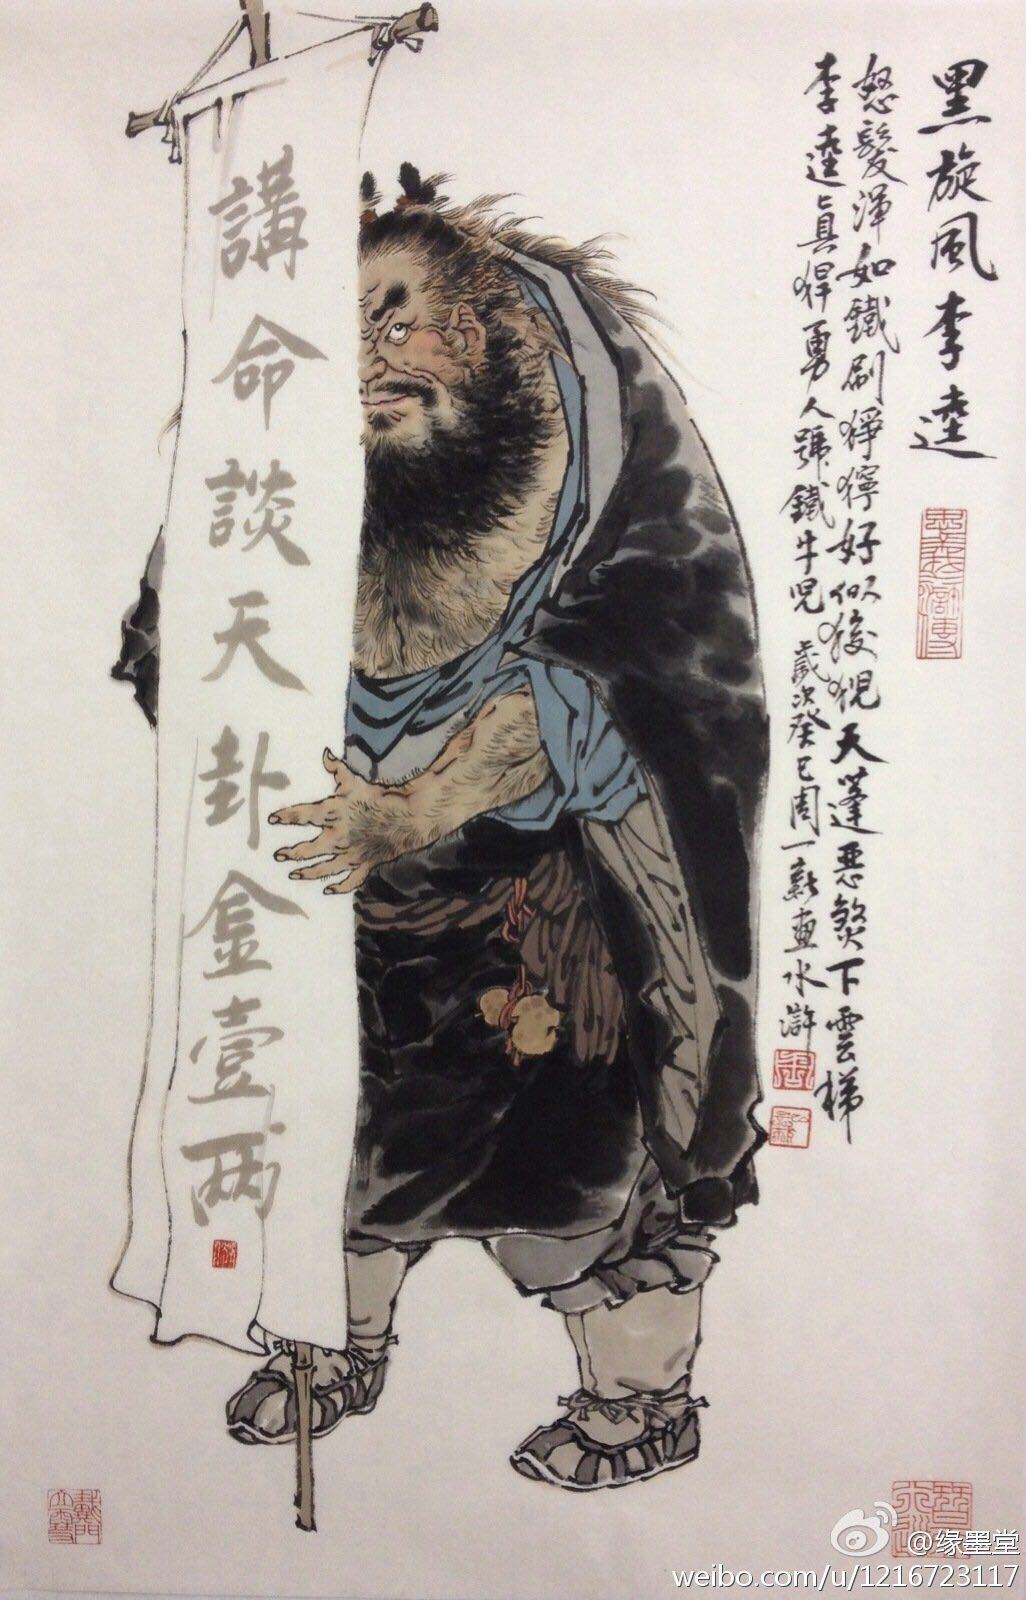 黑旋風李逵
怒髮渾如鐵刷猙獰好似狻猊天蓬惡煞下雲梯
李逵真猂勇人號鐵牛児 歲次癸巳周一新畫水滸
講命談天卦金壹兩
@缘墨堂
weibo.com/u/1216723117